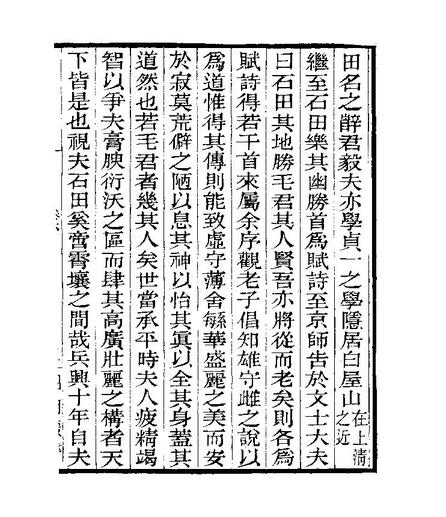 田名之辭君毅夫亦學貞一之學隱居白屋山在上清之近
繼至石田樂其幽勝首為賦詩至京師告於文士大夫
曰石田其地勝毛君其人賢吾亦將從而老矣則各為
賦詩得若干首來屬余序觀老子倡知雄守雌之說以
為道惟得其傳則能致虛守薄舍緐華盛麗之美而安
於寂莫荒僻之陋以息其神以怡其真以全其身蓋其
道然也若毛君者幾其人矣世當承平時夫人疲精竭
智以爭夫膏腴衍沃之區而肆其高廣壯麗之構者天
下皆是也視夫石田奚啻霄壤之間哉兵興十年自夫